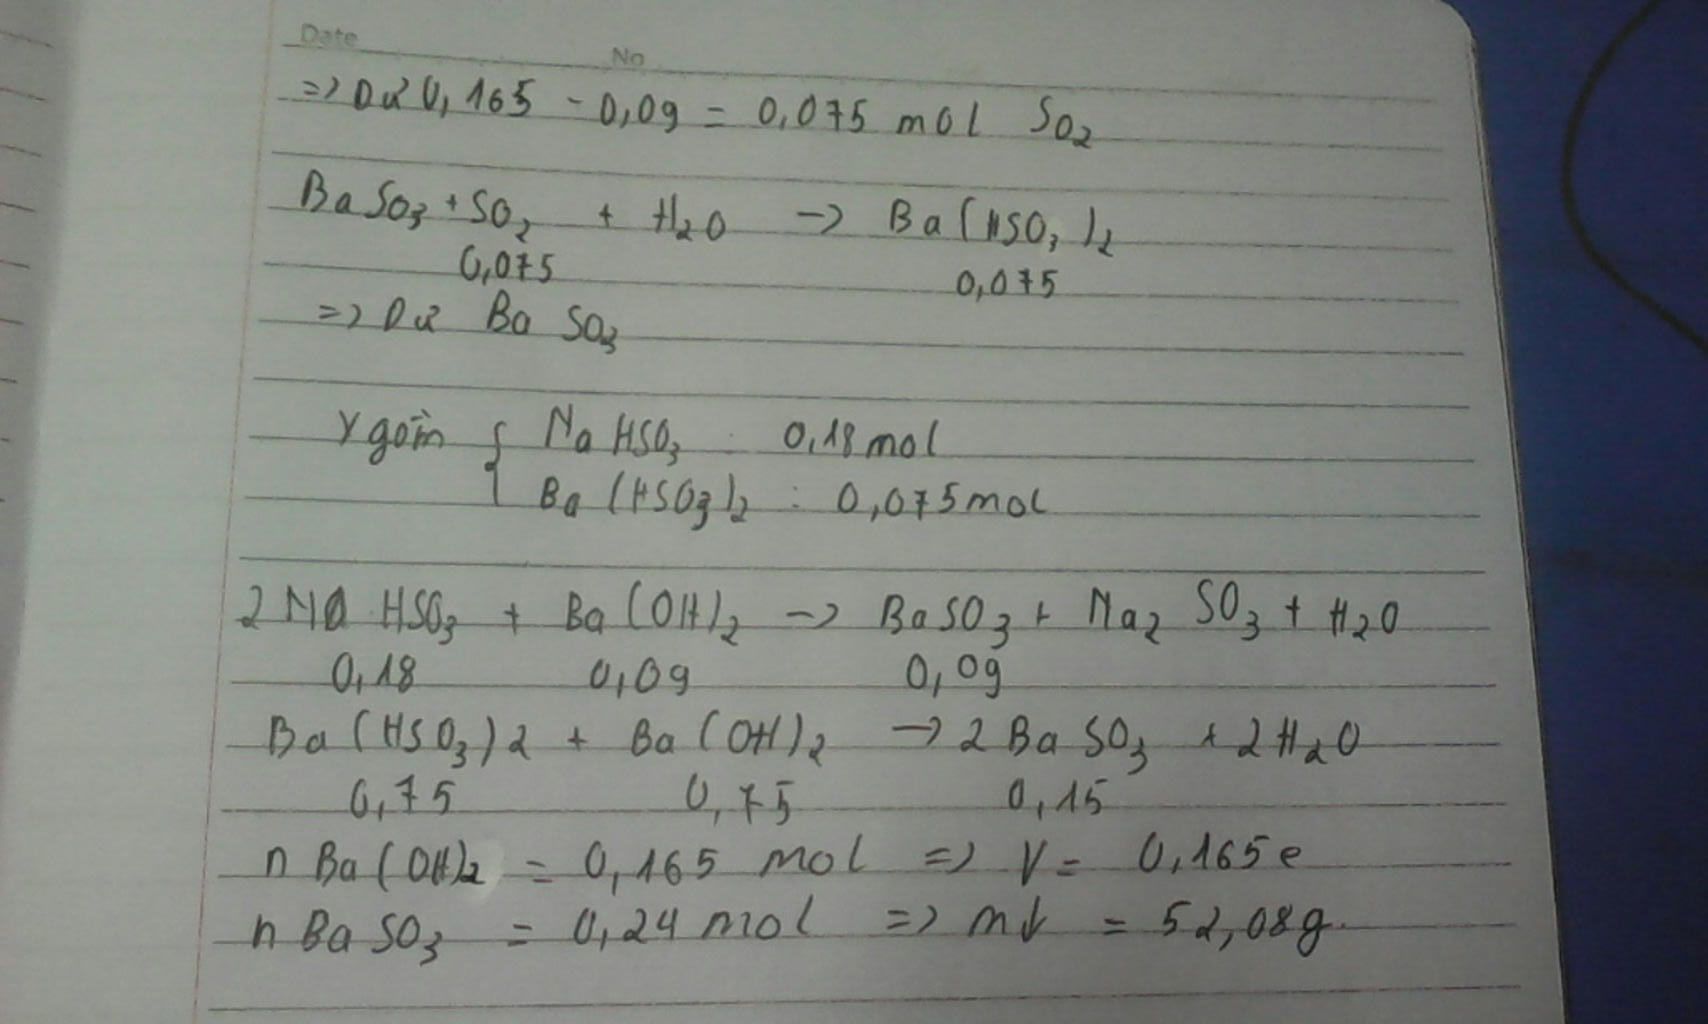 Date No
=> Dư 0,165 - 0,09 = 0,075 mol SO2
BaSO3 + SO2 + H2O -> Ba(HSO3)2
0,075 0,075
=> Dư BaSO3
Y gồm { NaHSO3 : 0,18 mol
Ba(HSO3)2 : 0,075 mol
2NaHSO3 + Ba(OH)2 -> BaSO3 + Na2SO3 + H2O
0,18 0,09 0,09
Ba(HSO3)2 + Ba(OH)2 -> 2BaSO3 + 2H2O
0,75 0,75 0,15
nBa(OH)2 = 0,165 mol => V = 0,165 l
nBaSO3 = 0,24 mol => m↓ = 52,08g.